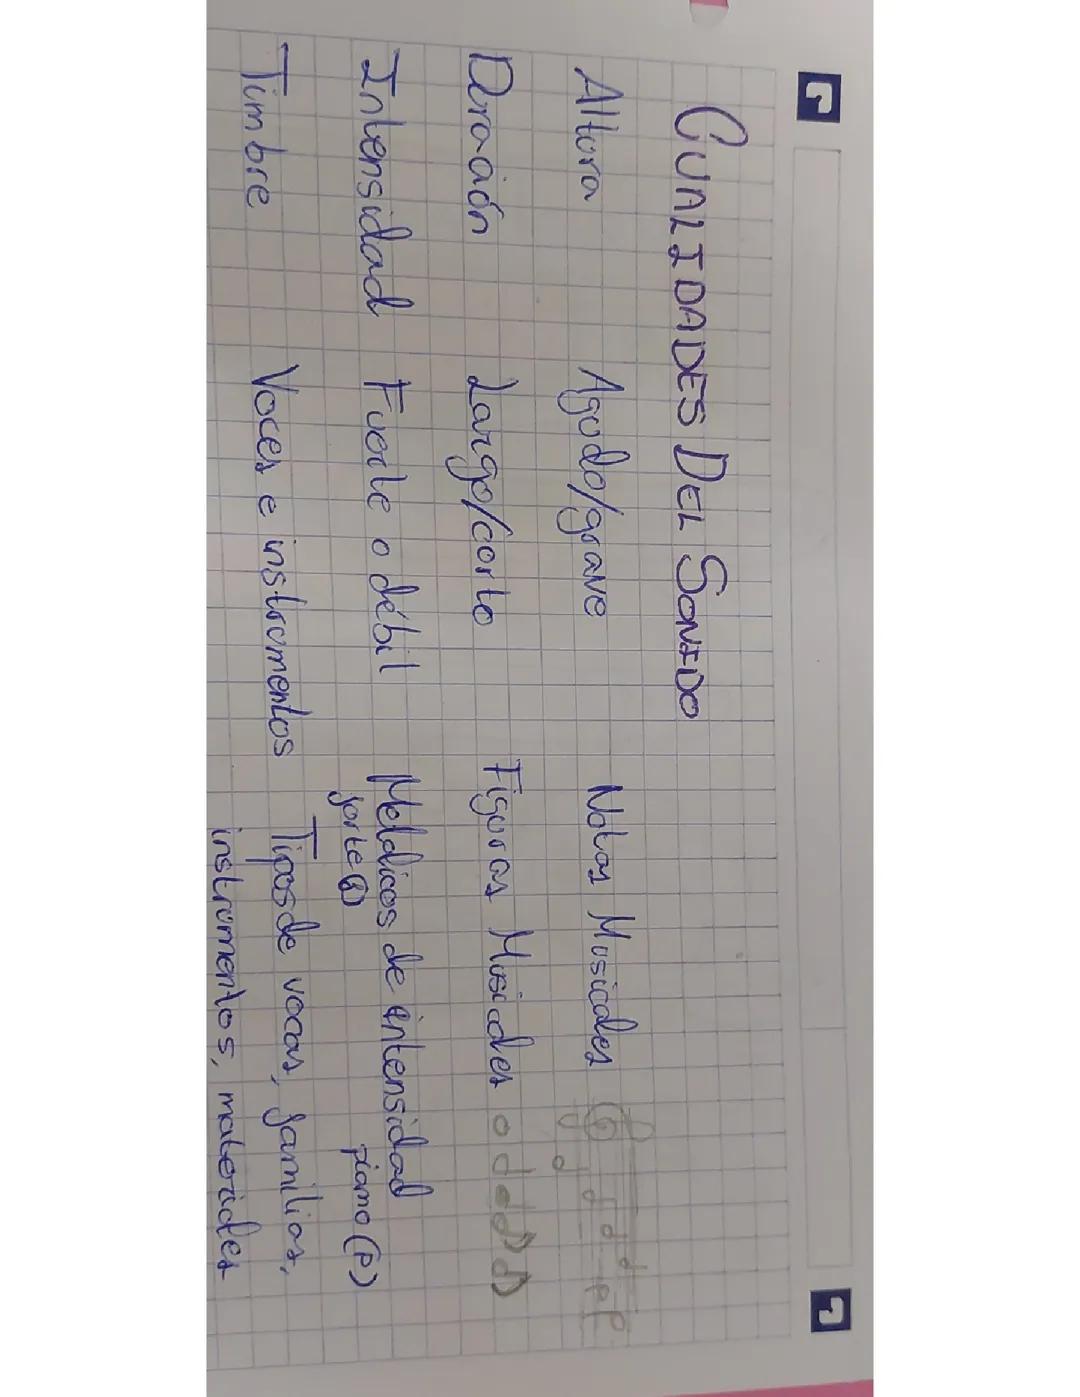 CUALIDADES DEL SONIDO
Altura Agudo/grave Notas Musicales
Duración Largo/corto Figuras Musicales
Intensidad Fuerte o débil Melódicos de intensidad
forte (f) piano (p)
Timbre Voces e instrumentos Tipos de voces, familias,
instrumentos, materiales